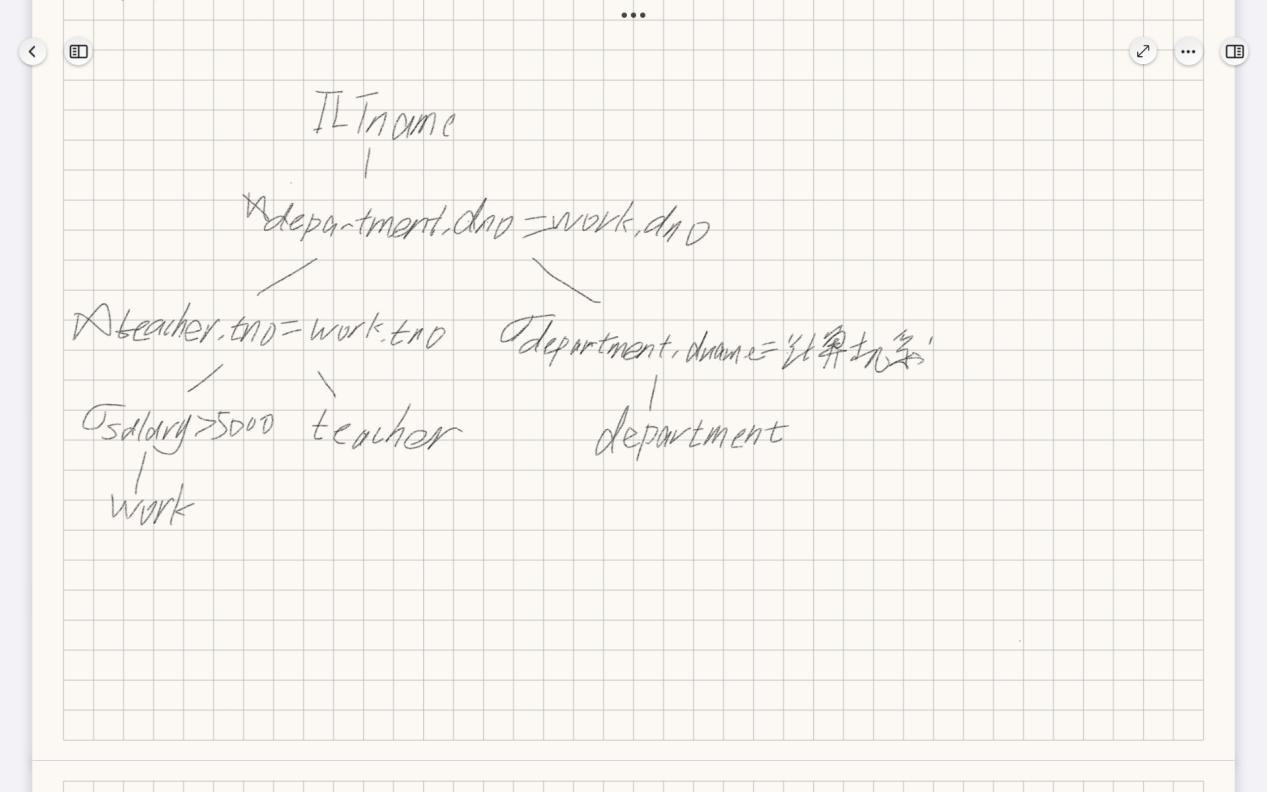 π Tname
⋈department.dno=work.dno
⋈teacher.tno=work.tno
σdepartment.dname='计算机系'
σsalary>5000
teacher
department
work